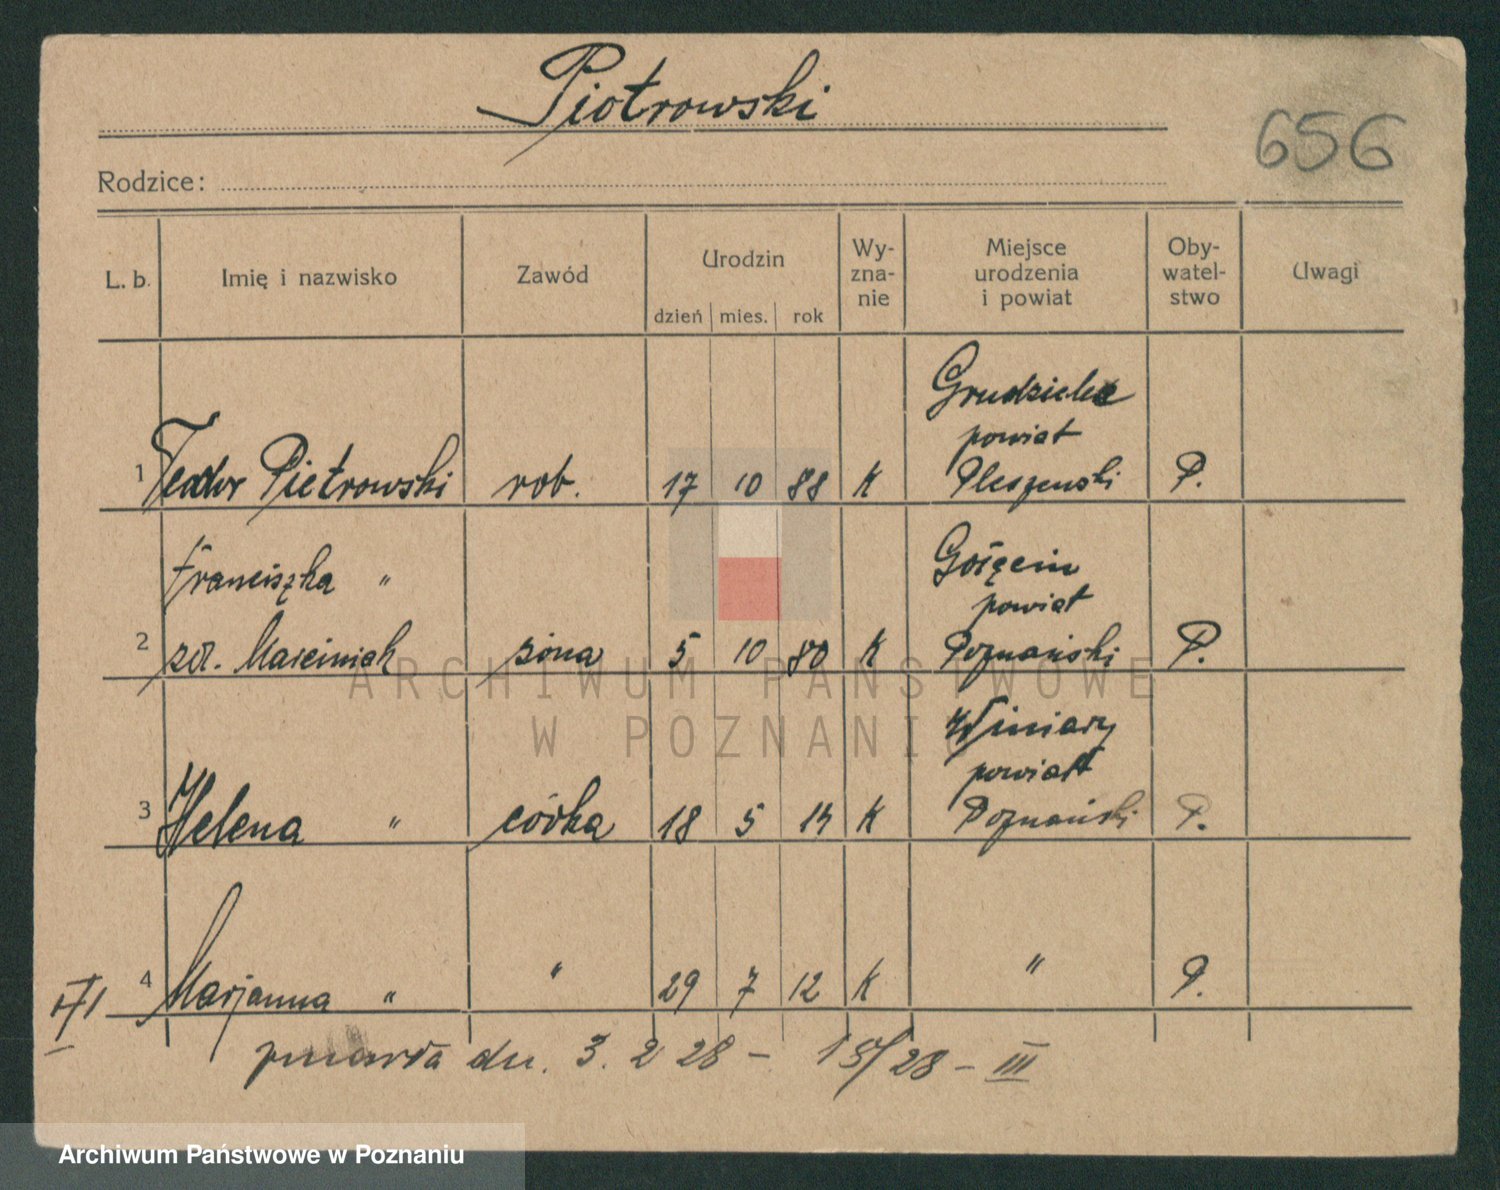 Piotrowski
656
Rodzice:
L. b. Imię i nazwisko Zawód Urodzin dzień mies. rok Wy-zna-nie Miejsce urodzenia i powiat Oby-watel-stwo Uwagi
Grudzielec
powiat
1 Teodor Piotrowski rob. 17 10 88 K Pleszewski P.
Franciszka " Gołęcin
powiat
2 zd. Marciniak żona 5 10 80 K Poznański P.
Winiary
powiat
3 Helena " córka 18 5 14 K Poznański P.
4 Marjanna " " 29 7 12 K " P.
zmarła dn. 3. 2 28 – 15/28 – III
ARCHIWUM PAŃSTWOWE
W POZNANIU
Archiwum Państwowe w Poznaniu